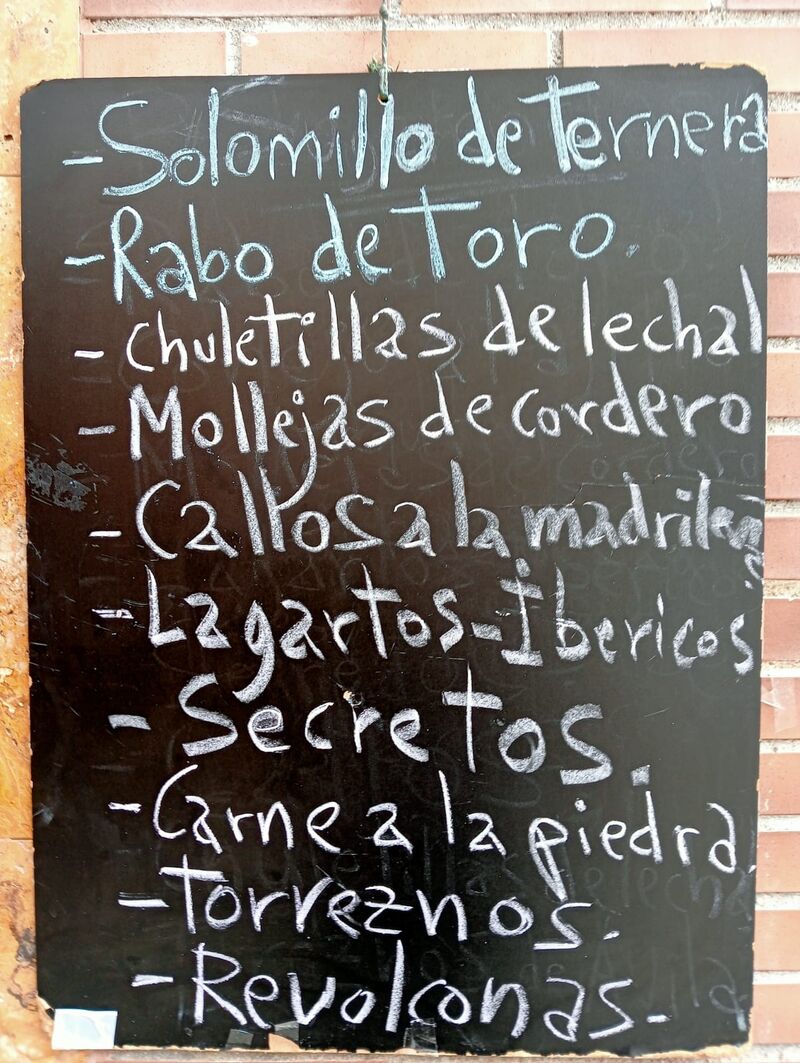 - Solomillo de Ternera
- Rabo de Toro.
- Chuletillas de lechal
- Mollejas de cordero
- Callos a la madrileñ
- Lagartos - Ibericos
- Secretos.
- Carne a la piedra.
- Torreznos.
- Revolconas.